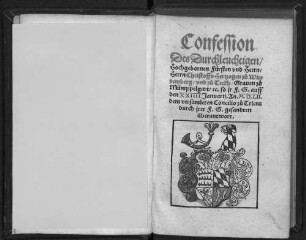 Confession
Des Durchleuchtigen/
Hochgebornen Fürsten vnd Herrn/
Herrn Christoffs Hertzogen zů Wir-
temberg/ vnd zů Teckh/ Grauen zů
Mümppelgart/ ꝛc. so jr F. G. auff
den XXIIII. Januarij. An. M.D.LII.
dem versamleten Concilio zů Trient
durch jrer F. G. gesandten
überantwort.